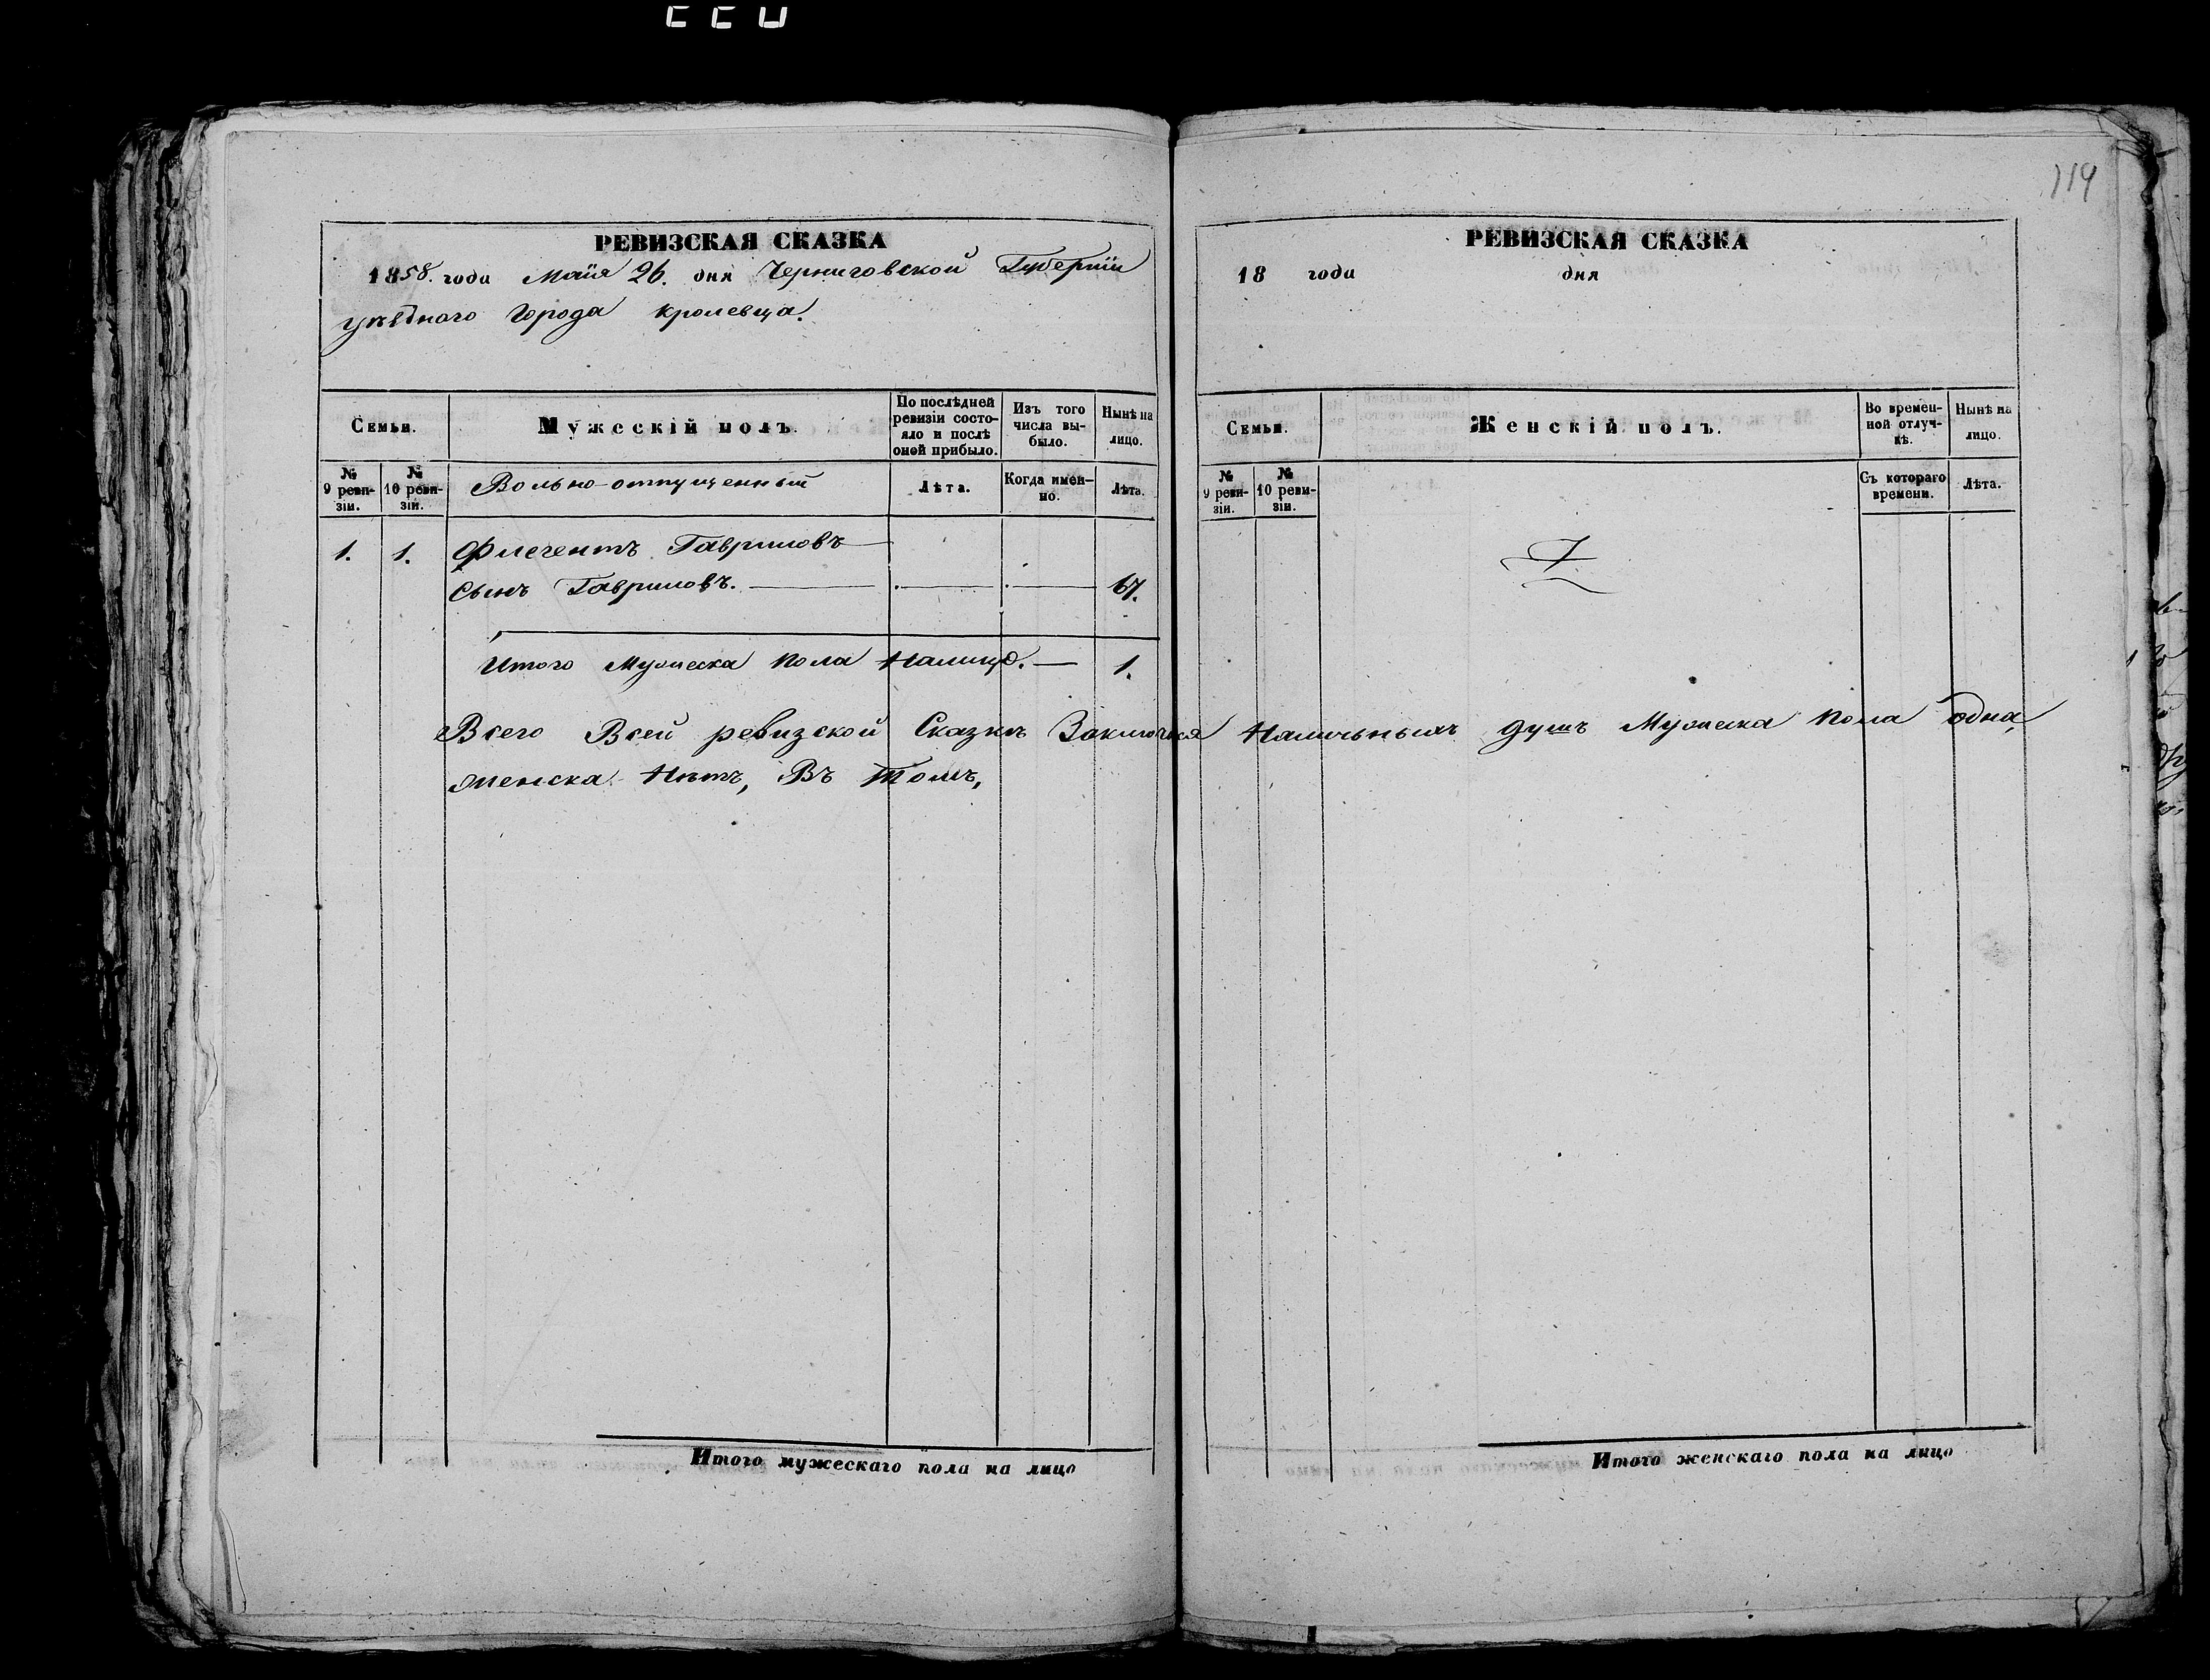 119
РЕВИЗСКАЯ СКАЗКА
1858. года Маія 26. дня Черниговской Губерніи
уѣзднаго Города Кролевца.
Семьи.
Мужескій полъ.
По послѣдней ревизіи состояло и послѣ оной прибыло.
Изъ того числа выбыло.
Нынѣ на лицо.
№ 9 ревизіи.
№ 10 ревизіи.
Вольно-отпущенный
Лѣта.
Когда именно.
Лѣта.
1. 1. Гавриловъ
Сынъ Гавриловъ. 67.
Итого Мужеска пола Налицо. 1.
РЕВИЗСКАЯ СКАЗКА
18 года дня
Семьи.
Женскій полъ.
Во временной отлучкѣ.
Нынѣ на лицо.
№ 9 ревизіи.
№ 10 ревизіи.
Съ котораго времени.
Лѣта.
Всего Всей ревизской Сказкѣ Наличныхъ душъ Мужеска пола одна,
женска Нѣтъ, Въ Томъ,
Итого мужескаго пола на лицо
Итого женскаго пола на лицо